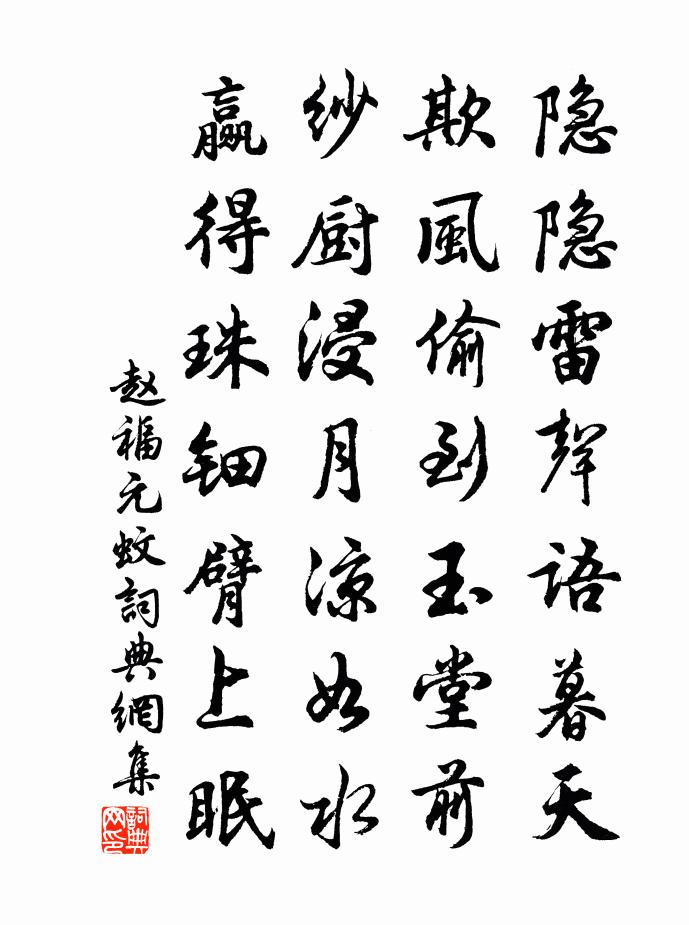 隐隐雷聲語暮天
欺風偷到玉堂前
纱厨浸月凉如水
赢得珠钿臂上眠
赵福元蚊詞典網集
詞典网印